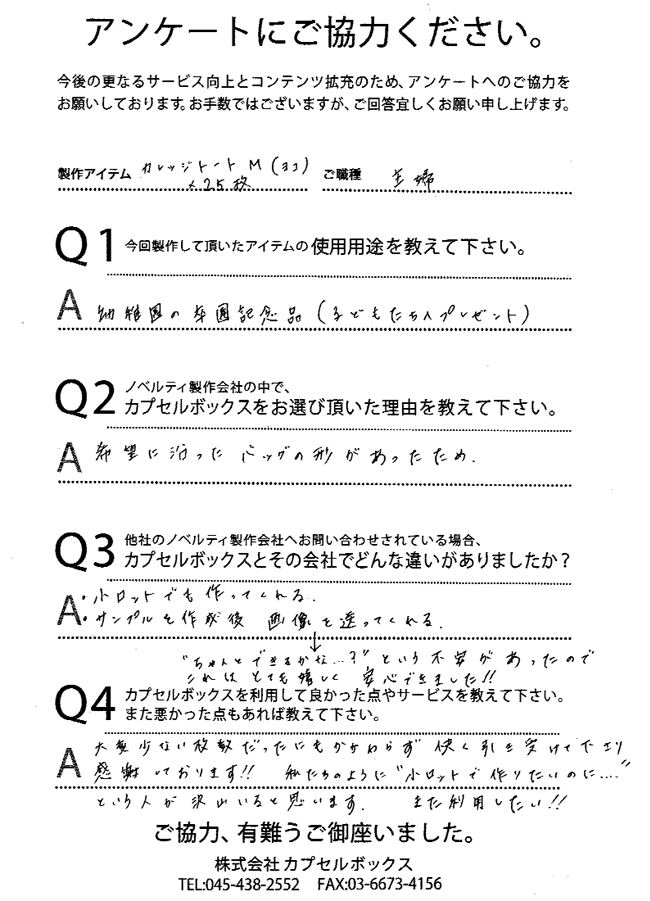 アンケートにご協力ください。
今後の更なるサービス向上とコンテンツ拡充のため、アンケートへのご協力を
お願いしております。お手数ではございますが、ご回答宜しくお願い申し上げます。
製作アイテム カレッジトートM(ヨコ) ご職種 主婦
×25枚
Q1 今回製作して頂いたアイテムの使用用途を教えて下さい。
A 幼稚園の卒園記念品(子どもたちへプレゼント)
Q2 ノベルティ製作会社の中で、
カプセルボックスをお選び頂いた理由を教えて下さい。
A 希望に沿ったバッグの形があったため.
Q3 他社のノベルティ製作会社へお問い合わせされている場合、
カプセルボックスとその会社でどんな違いがありましたか?
A ・小ロットでも作ってくれる.
・サンプルを作成後 画像を送ってくれる.
↓
"ちゃんとできるかな…?"という不安があったので
これはとても嬉しく安心できました!!
Q4 カプセルボックスを利用して良かった点やサービスを教えて下さい。
また悪かった点もあれば教えて下さい。
A 大変少ない枚数だったにもかかわらず快く引き受けて下さり
感謝しております!! 私たちのように"小ロットで作りたいのに…."
という人が沢山いると思います. また利用したい!!
ご協力、有難うご御座いました。
株式会社 カプセルボックス
TEL:045-438-2552 FAX:03-6673-4156